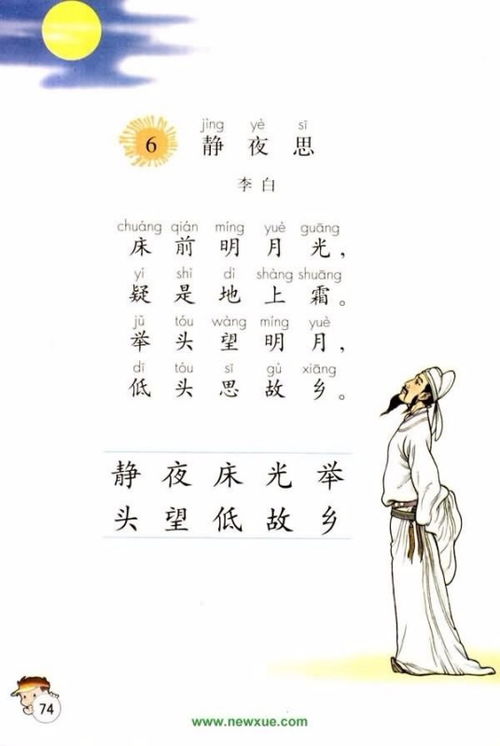 jìng yè sī
6 静夜思
李白
chuáng qián míng yuè guāng
床前明月光，
yí shì dì shàng shuāng
疑是地上霜。
jǔ tóu wàng míng yuè
举头望明月，
dī tóu sī gù xiāng
低头思故乡。
静夜床光举
头望低故乡
74
www.newxue.com